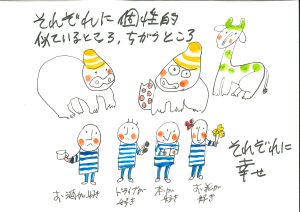 それぞれに 個性的
似ているところ、ちがうところ
お酒が好き
ドライブが
好き
本が
好き
お花が
好き
それぞれに
幸せ